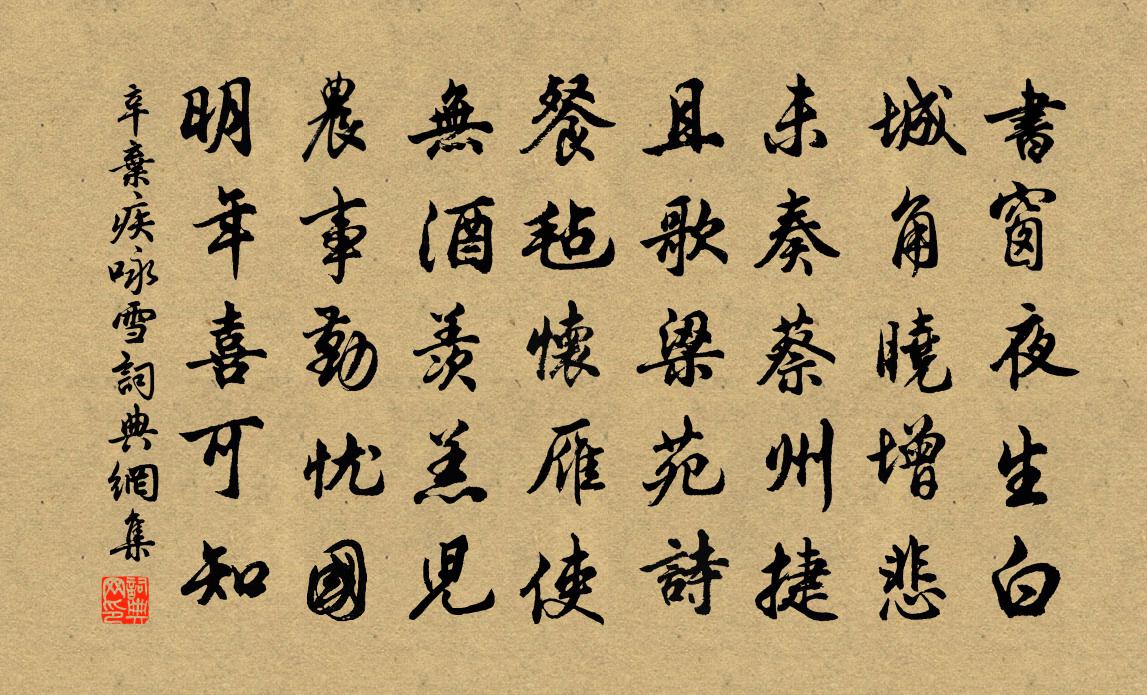 書窗夜生白
城角曉增悲
未奏蔡州捷
且歌梁苑詩
餐毡懷雁使
無酒羡羔兒
農事勤忧國
明年喜可知
辛棄疾咏雪詞典網集
詞典網印